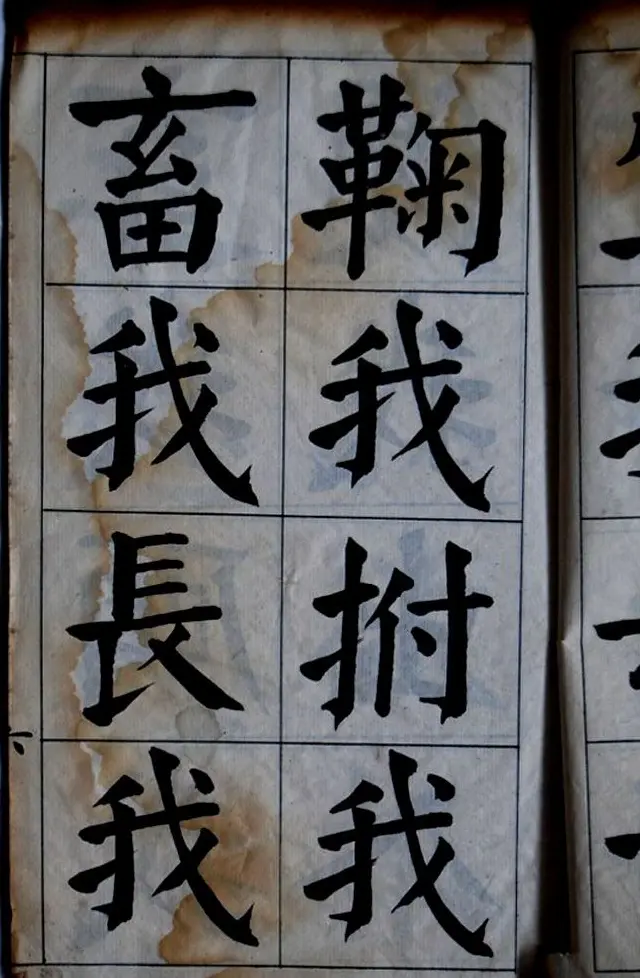 鞠我拊我
畜我長我
六